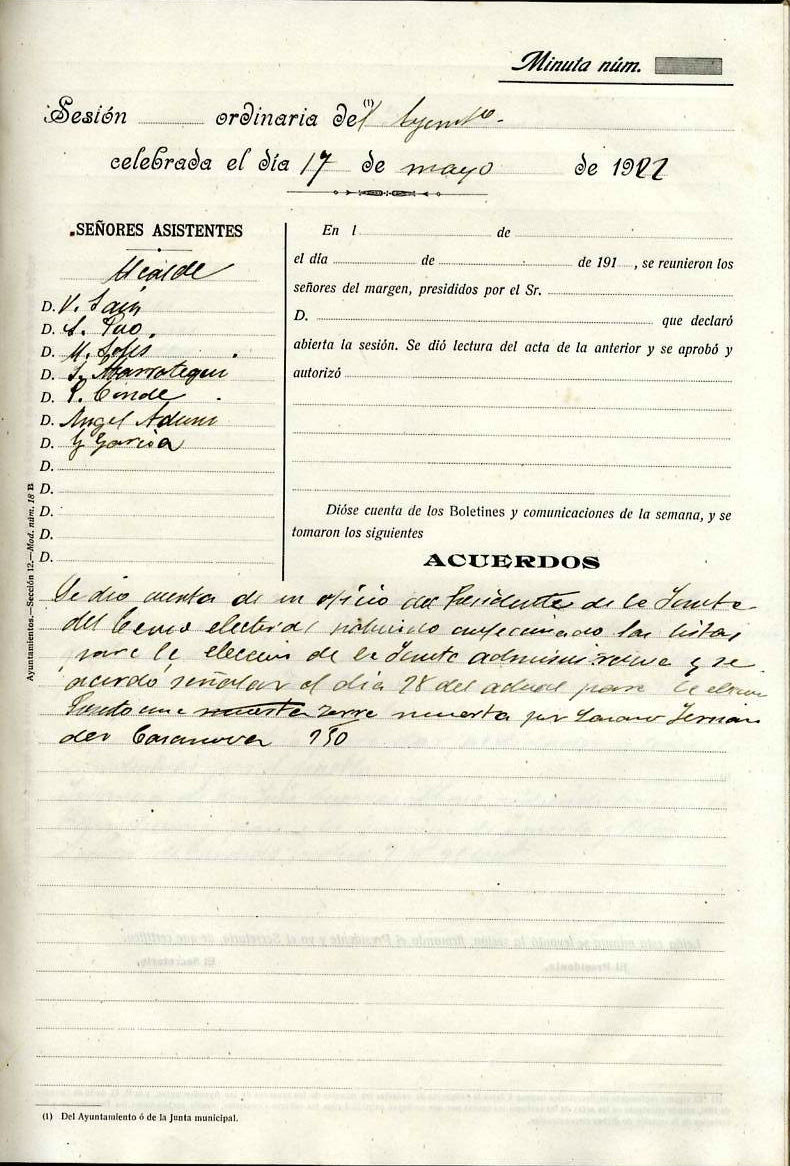 Minuta núm.
Sesión ordinaria del (1) Ayunto.
celebrada el día 17 de mayo de 1922
SEÑORES ASISTENTES
Alcalde
D. V. Sain
D. S.
D. M. Solis
D. S.
D. P. Conde
D. Angel
D. Y Garcia
D.
D.
D.
D.
D.
En l de
el día de de 191 , se reunieron los
señores del margen, presididos por el Sr.
D. que declaró
abierta la sesión. Se dió lectura del acta de la anterior y se aprobó y
autorizó
Dióse cuenta de los Boletines y comunicaciones de la semana, y se
tomaron los siguientes
ACUERDOS
Se dio cuenta de un oficio del Presidente de la Junta
del Censo electoral las listas
para la eleccion de la Junta administrativa y se
acordó señalar el dia 28 del actual para la eleccion
una muerta zorra muerta por Fernan
der Casanova 750
Ayuntamientos.—Sección 12.—Mod. núm. 18 B
(1) Del Ayuntamiento ó de la Junta municipal.